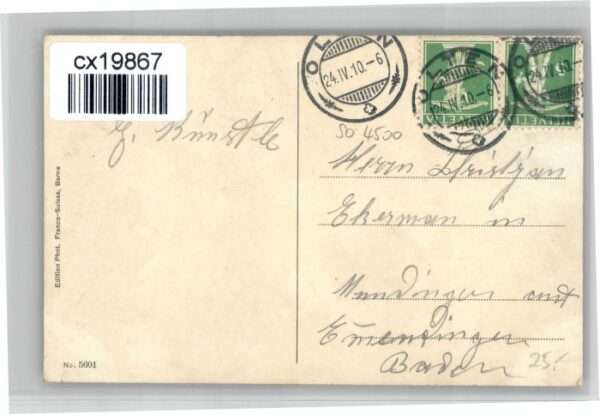 cx19867
OLTEN
24.IV.10.-6
OLTEN
24.IV.10.-6
OLTEN
HELVETIA
HELVETIA
SO 4500
Herrn Christjan
Ekerman in
Mundingen amt
Emendingen
Baden
25.-
Edition Phot. Franco-Suisse, Berne
No. 5601